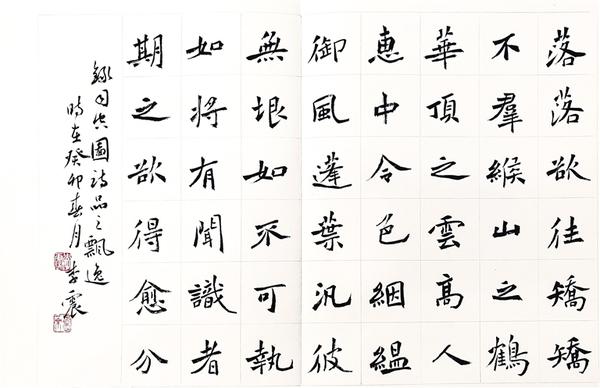 落落欲往矯矯
不羣緱山之鶴
華頂之雲高人
惠中令色絪縕
御風蓬葉汎彼
無垠如不可執
如將有聞識者
期之欲得愈分
錄司空圖詩品之飄逸
時在癸卯春月 李震